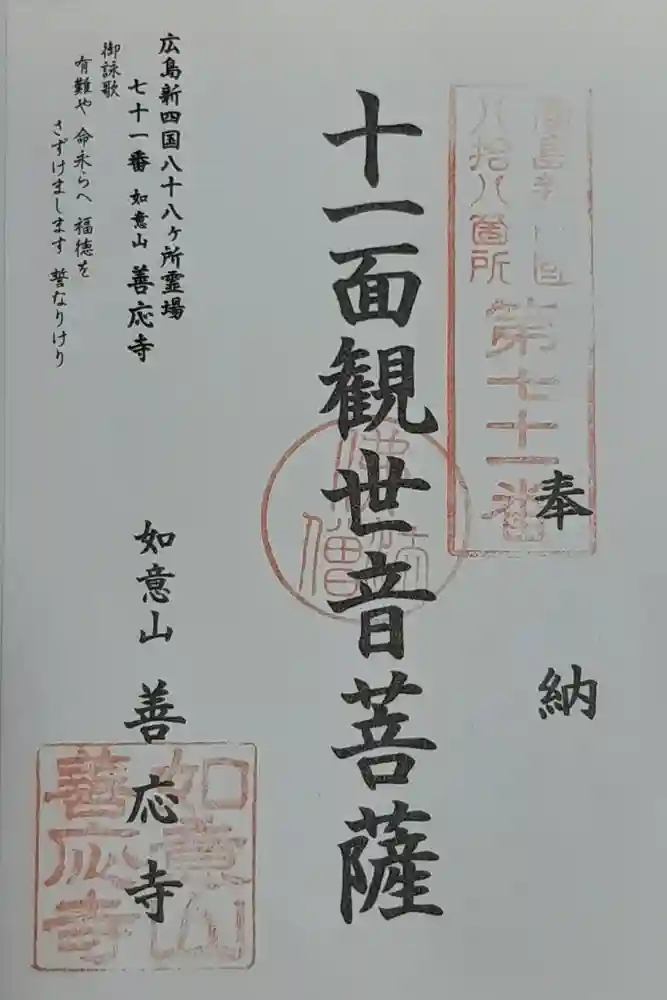 奉納
広島新四国
八拾八箇所
第七十一番
十一面観世音菩薩
佛法僧
広島新四国八十八ヶ所霊場
七十一番 如意山 善応寺
御詠歌
有難や 命永らへ 福徳を
さずけまします 誓なりけり
如意山 善応寺
如意山
善応寺